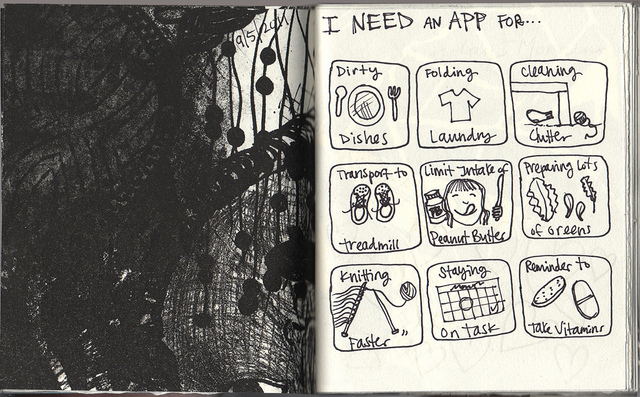 9/5/2011
I NEED AN APP FOR...
Dirty
Dishes
Folding
Laundry
Cleaning
Clutter
Transport to
treadmill
Limit Intake of
Peanut Butter
Preparing Lots
of Greens
Knitting
Faster
Staying
On Task
Reminder to
Take Vitamins